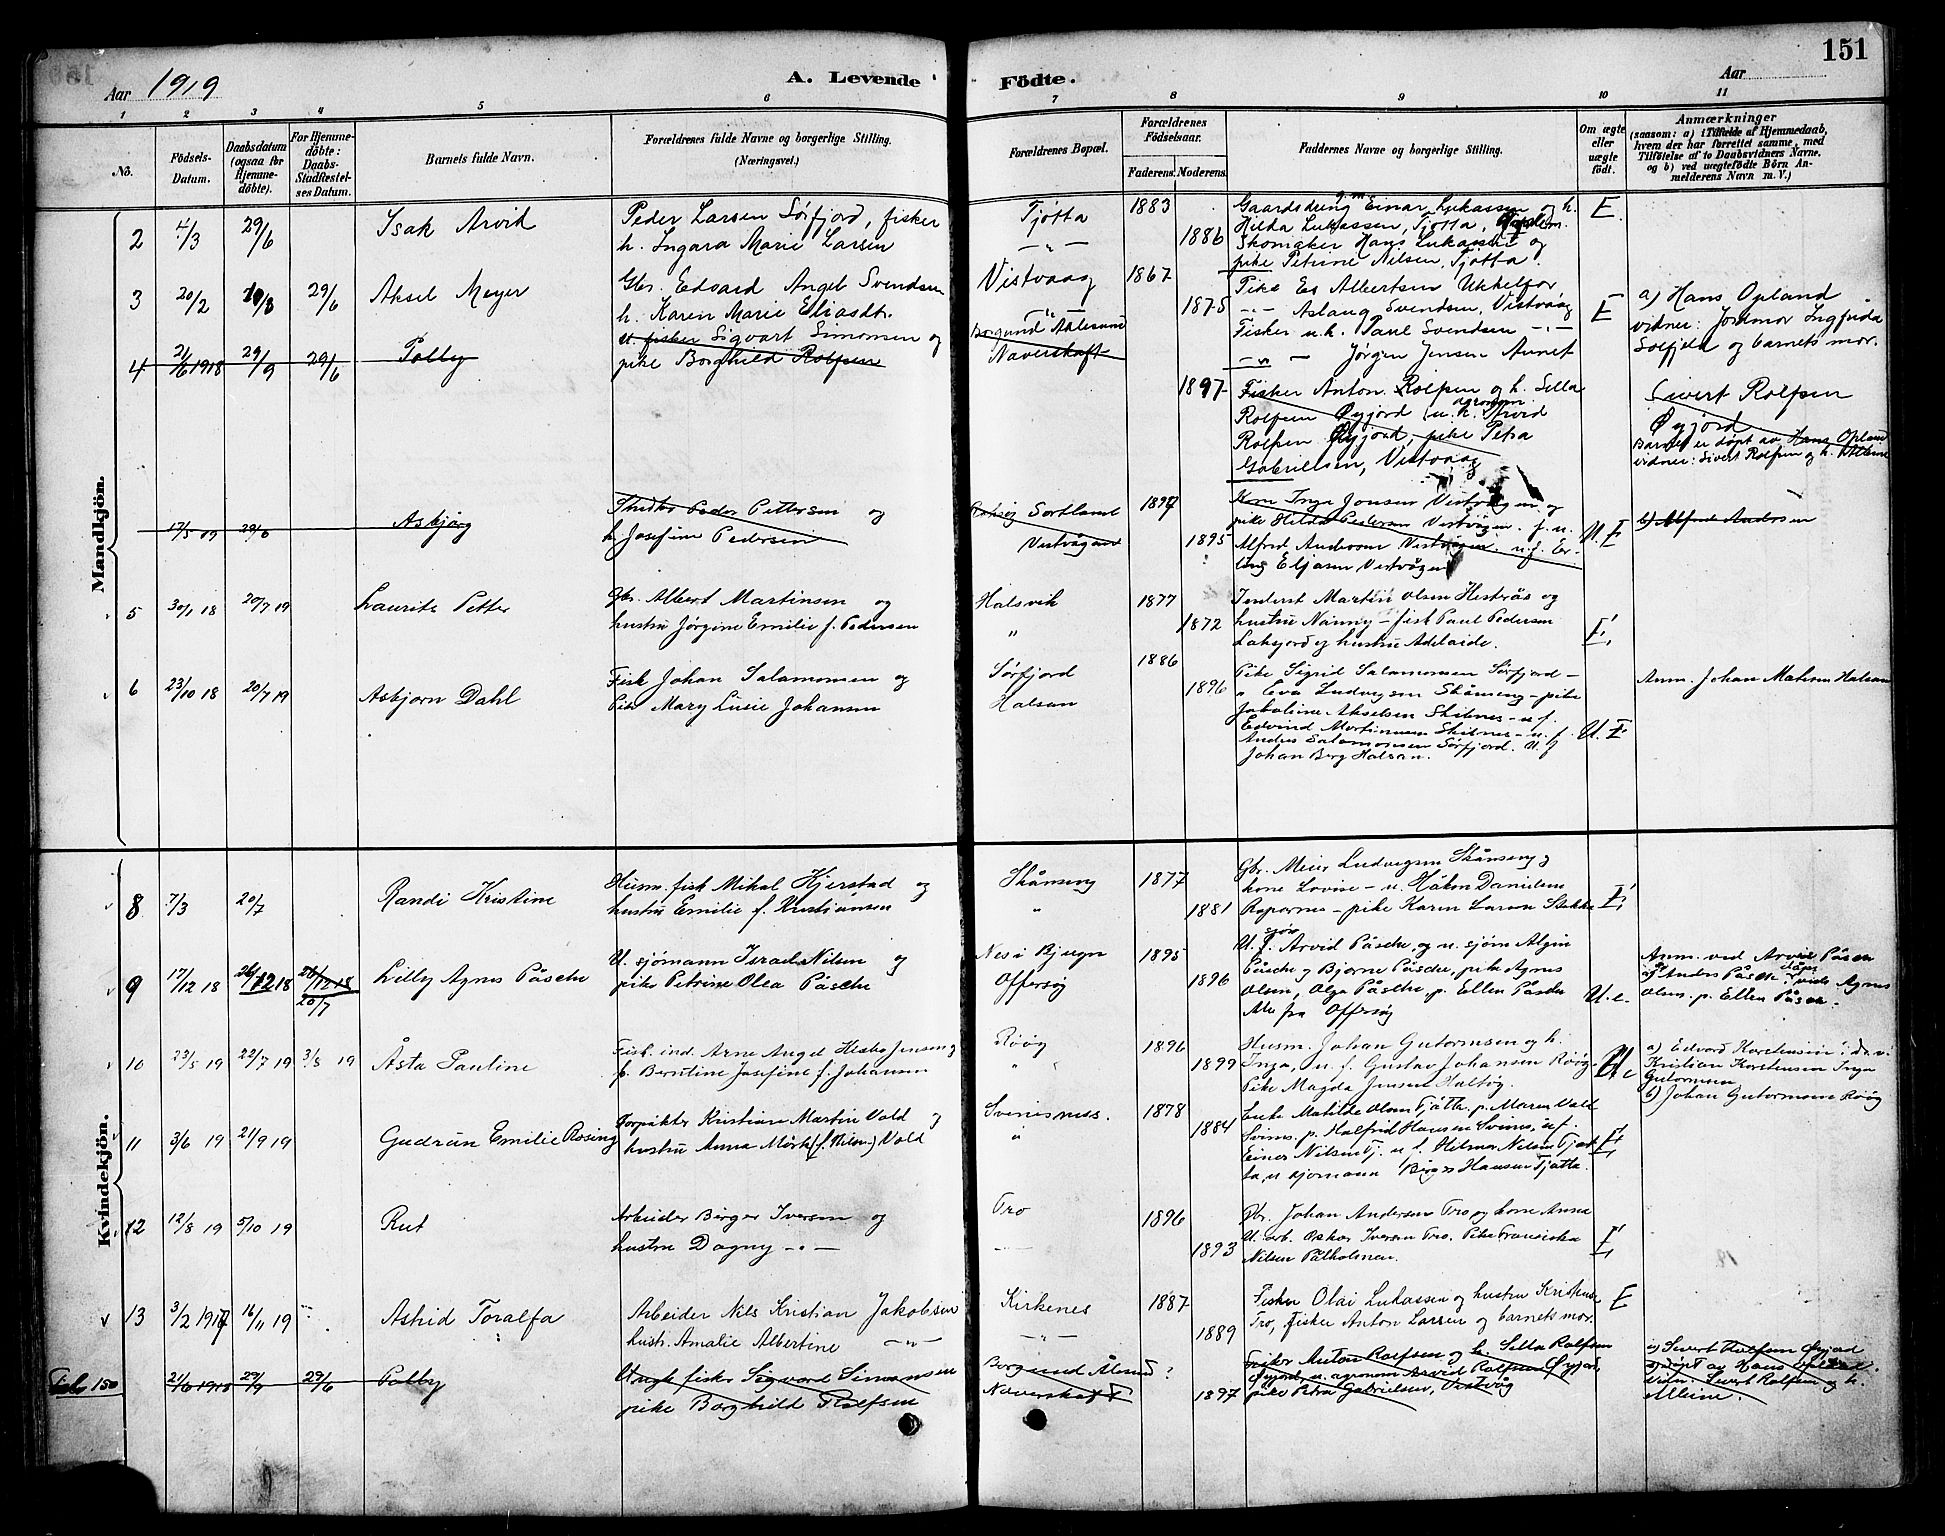 Aar 1919
A. Levende Födte.
Aar
151
1 2 3 4 5 6 7 8 9 10 11
No.
Födsels-
Datum.
Daabsdatum
(ogsaa for
Hjemme-
döbte).
For Hjemme-
döbte:
Daabs-
Stadfæstel-
ses Datum.
Barnets fulde Navn.
Forældrenes fulde Navne og borgerlige Stilling.
(Næringsvei.)
Forældrenes Bopæl.
Forældrenes
Födselsaar.
Faderens. Moderens.
Faddernes Navne og borgerlige Stilling.
Om ægte
eller
uægte
födt.
Anmærkninger
(saasom: a) i Tilfælde af Hjemmedaab,
hvem der har forrettet samme, med
Tilföielse af to Daabsvidners Navne,
og b) ved uægtefödte Börn An-
melderens Navn m. V.)
Mandkjön.
2 4/3 29/6 Isak Arvid
Peder Larsen Sørfjord, fisker
h. Ingara Marie Larsen
Tjøtta
1883
1886
Gaardsdreng Einar Lukassen og h.
Hilda Lukassen, Tjøtta,
Skomaker Hans Lukassen og
pike Petrine Nilsen, Tjøtta.
E.
3 20/2 29/6 Aksel Meyer
Gbr. Edvard Angel Svendsen
h. Karen Marie Eliasdtr.
Vistvaag
1867
1875
Pike Albertsen
Aslaug Svendsen, Vistvaag
Fisker u. h. Paul Svendsen
Jørgen Jensen
E
a) Hans Opland
vidner: Jordmor Ingfrida
Solfjeld og barnets mor.
4 21/6 1918 29/9 29/6 Polby
u. fisker Sigvart Simonsen og
pike Borghild Rolfsen
Borgund Aalesund
Naverskaft
1897
Fisker Anton Rolfsen og h. Sella
Rolfsen Øyjord, u. h. agronom Arvid
Rolfsen Øyjord, pike Petra
Gabrielsen, Vistvaag
Sivert Rolfsen
Øyjord
Barnet er døpt av Hans Opland
vidner: Sivert Rolfsen og h. Alleine
17/5 19 29/6 Asbjørg
Peder Pettersen og
h. Josefine Pedersen
Sortland
Vestvågen
1897
1895
Kone Inga Jonsen Vestvågen og
pike Hilda Pedersen Vestvågen. f. u.
Alfred Andersen Vestvågen. u. f. Er-
ling Eljasen Vestvågen
U. E
b) Alfred Andersen
5 30/1 18 20/7 19 Laurits Petter
Gbr. Albert Martinsen og
hustru Jørgine Emilie f. Pedersen
Halsvik
"
1877
1872
Inderst Martin Olsen Hestvås og
hustru Nanny – fisk Paul Pedersen
Laksjord og hustru Adelaide.
E
6 23/10 18 20/7 19 Asbjørn Dahl
Fisk Johan Salamonsen og
Pik Mary Lusie Johansen
Sørfjord
Halsan
1886
1896
Pike Sigrid Salamonsen Sørfjord –
" Eva Ludvigsen Skånseng – pike
Jakoline Akselsen Skibnes – u f.
Edvind Mortinusen Skibnes – u. f.
Andres Salamonsen Sørfjord. U. f
Johan Berg Halsan.
U. E
Anm. Johan Halsan
Kvindekjön.
8 7/3 20/7 Randi Kristine
Husm. fisk Mikal Kjerstad og
hustru Emilie f. Kristiansen
Skånseng
"
1877
1881
Gbr. Meier Ludvigsen Skånseng og
kone Lovise – u. Håkon Danielsen
– pike Karen Larsen
E
9 17/12 18 26/12 18 26/12 18
20/7
Lilly Agnes Påsche
U. sjømann Israel Nilsen og
pike Petrine Olea Påsche
Nes i Bjugn
Offersøy
1895
1896
U. sjøm. Arvid Påsche, og u. sjøm Algin
Påsche og Bjarne Påsche, pike Agnes
Olsen, Olga Påsche, p. Ellen Påsche
Alle fra Offersøy
U. e.
Anm. ved Arvid Påsche
a) Anders Påsche døpt vidn Agnes
Olsen. p. Ellen Påsche.
10 23/5 19 22/7 19 3/8 19 Åsta Pauline
Fisk. ind. Arne Angel Jensen og
p. Berntine Josefine f. Johansen
Røøy
"
1896
1899
Husm. Johan Gutormsen og h.
Inga, u. f. Gustav Johansen Røøy
Pike Magda Jensen Haltøy.
U e
a) Edvard Korstensen: da v:
Kristian Korstensen Inga
Gutormsen
b) Johan Gutormsen Røøy
11 3/6 19 21/9 19 Gudrun Emilie Rosing
Forpakter Kristian Martin Vold og
hustru Anna Mörk (f. Nilsen) Vold
Svinsness.
"
1878
1884
Enke Matilde Olsen Tjøtta. p. Maren Vold
Svins. p. Halfrid Hansen Svines, u. f.
Einer Nilsen Tj. u f. Hilmar Nilsen Tjøt-
ta, u sjømann Birger Hansen Tjøtta.
E
12 12/8 19 5/10 19 Rut
Arbeider Birger Iversen og
hustru Dagny – " –
Tro
1896
1893
Gbr. Johan Andersen Tro og kone Anna
U. arb. Oskar Iversen Tro. Pike Fransiska
Nilsen Pålholmen.
E
13 3/2 1917 16/11 19 Astrid Toralfa
Arbeider Nils Kristian Jakobsen
hustr. Amalie Albertine – " –
Kirkenes
– " –
1887
1889
Fisker Olai Lukassen og hustru Kristense
Tro, fisker Anton Larsen og barnets mor.
E
150 21/6 1918 29/9 29/6 Polby
Ungk fisker Sigvard Simonsen
pike Borghild Rolfsen
Borgund Ålesund
Naverskaft
?
1897
Fisker Anton Rolfsen og h. Sella Rolfsen
Øyjord, u. agronom Arvid Rolfsen Øyjord,
pike Petra Gabrielsen, Vistvåg
a) Sivert Rolfsen Øyjord
a) døpt av Hans Opland.
vidn. Sivert Rolfsen og h.
Alleine.